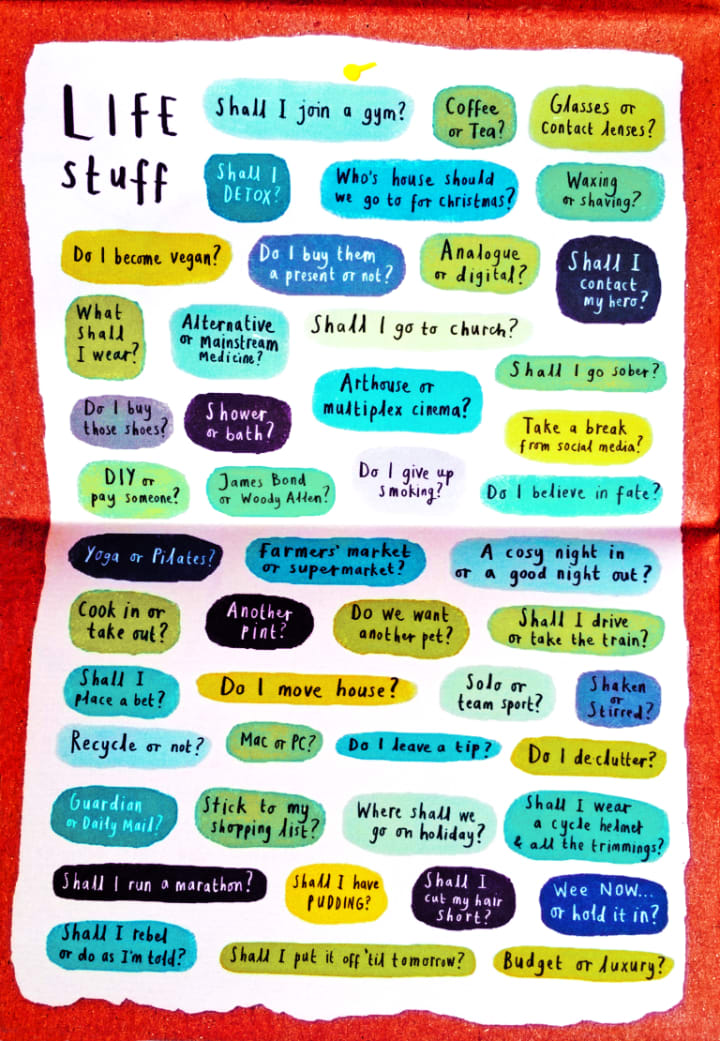 LIFE
stuff
Shall I join a gym?
Coffee
or Tea?
Glasses or
contact lenses?
Shall I
DETOX?
Who's house should
we go to for christmas?
Waxing
or shaving?
Do I become vegan?
Do I buy them
a present or not?
Analogue
or digital?
Shall I
contact
my hero?
What
shall
I wear?
Alternative
or Mainstream
Medicine?
Shall I go to church?
Arthouse or
multiplex cinema?
Shall I go sober?
Do I buy
those shoes?
Shower
or bath?
Take a break
from social media?
DIY or
pay someone?
James Bond
or Woody Allen?
Do I give up
smoking?
Do I believe in fate?
Yoga or Pilates?
Farmers' market
or supermarket?
A cosy night in
or a good night out?
Cook in or
take out?
Another
pint?
Do we want
another pet?
Shall I drive
or take the train?
Shall I
place a bet?
Do I move house?
Solo or
team sport?
Shaken
or
Stirred?
Recycle or not?
Mac or PC?
Do I leave a tip?
Do I declutter?
Guardian
or Daily Mail?
Stick to my
shopping list?
Where shall we
go on holiday?
Shall I wear
a cycle helmet
& all the trimmings?
Shall I run a marathon?
Shall I have
PUDDING?
Shall I
cut my hair
short?
Wee NOW...
or hold it in?
Shall I rebel
or do as I'm told?
Shall I put it off 'til tomorrow?
Budget or luxury?